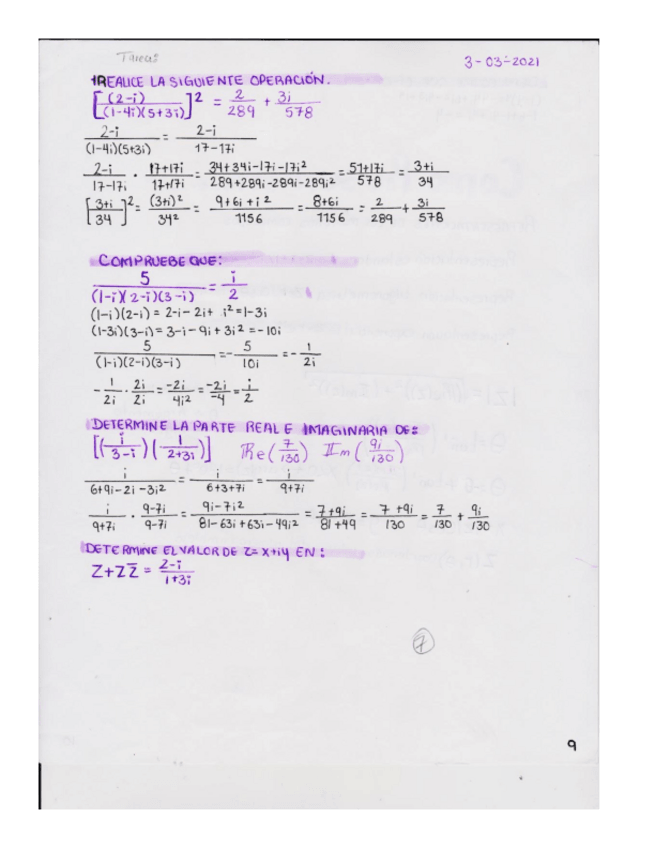 Tareas
3-03-2021
1REALICE LA SIGUIENTE OPERACIÓN.
[(2-i)/((1-4i)(5+3i))]² = 2/289 + 3i/578
2-i/(1-4i)(5+3i) = 2-i/17-17i
2-i/17-17i · 17+17i/17+17i = 34+34i-17i-17i²/289+289i-289i-289i² = 51+17i/578 = 3+i/34
[3+i/34]² = (3+i)²/34² = 9+6i+i²/1156 = 8+6i/1156 = 2/289 + 3i/578
COMPRUEBE QUE:
5/(1-i)(2-i)(3-i) = i/2
(1-i)(2-i) = 2-i-2i+ i²=1-3i
(1-3i)(3-i) = 3-i-9i+3i² = -10i
5/(1-i)(2-i)(3-i) = - 5/10i = - 1/2i
- 1/2i · 2i/2i = -2i/4i² = -2i/-4 = i/2
DETERMINE LA PARTE REAL E IMAGINARIA DE:
[(i/3-i)(1/2+3i)] Re(7/130) Im(9i/130)
i/6+9i-2i-3i² = i/6+3+7i = i/9+7i
i/9+7i · 9-7i/9-7i = 9i-7i²/81-63i+63i-49i² = 7+9i/81+49 = 7+9i/130 = 7/130 + 9i/130
DETERMINE EL VALOR DE Z=X+iY EN:
Z+Z\overline{Z} = 2-i/1+3i
7
9